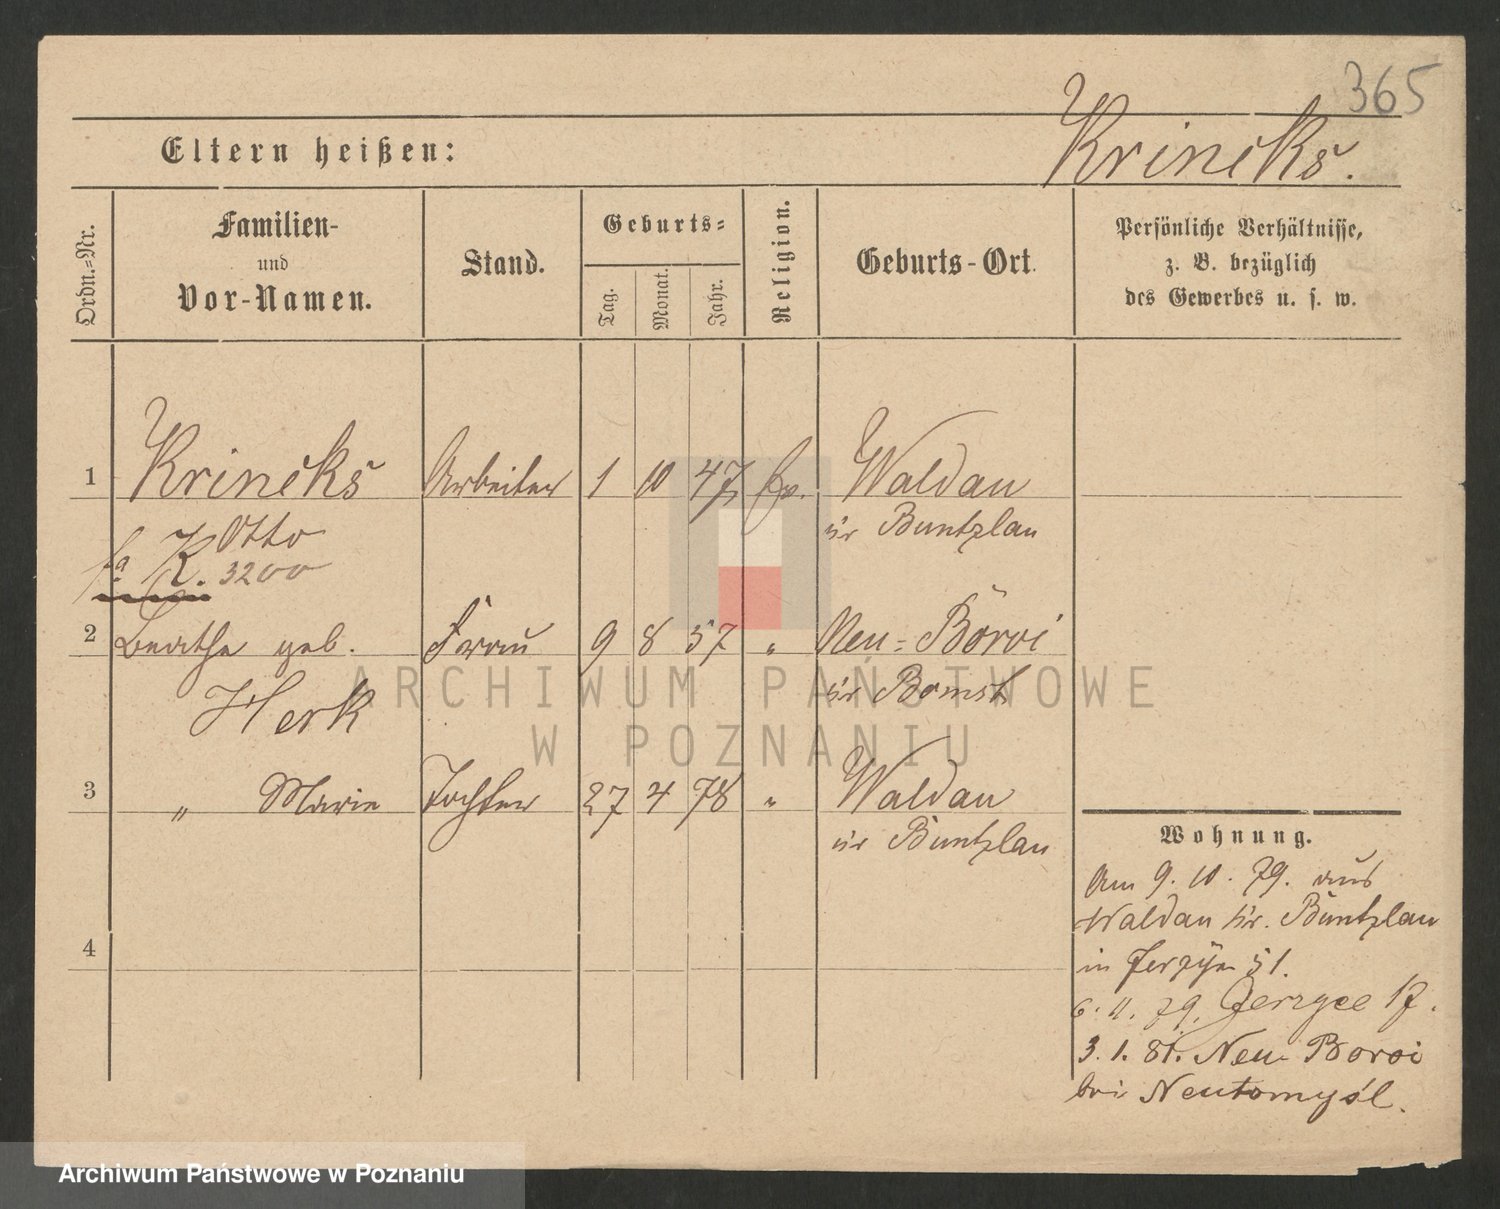 365
Krincks.
Eltern heißen:
Ordn.-Nr.
Familien-
und
Vor-Namen.
Stand.
Geburts-
Tag.
Monat.
Jahr.
Religion.
Geburts-Ort.
Persönliche Verhältnisse,
z. B. bezüglich
des Gewerbes u. s. w.
1 Krincks Arbeiter 1 10 47 Ev. Waldau
Otto Kr Buntzlau
K. 3200
2 Beathe geb. Frau 9 8 57 " Neu-Boroi
Herk Kr Bomst
3 " Marie Tochter 27 4 78 " Waldau
Kr Buntzlau
4
Wohnung.
Am 9. 10. 79. aus
Waldau Kr. Buntzlau
in Jerzyce 51.
6. 11. 79. Jerzyce 17.
3. 1. 81. Neu Boroi
bei Neutomyśl.
ARCHIWUM PAŃSTWOWE
W POZNANIU
Archiwum Państwowe w Poznaniu